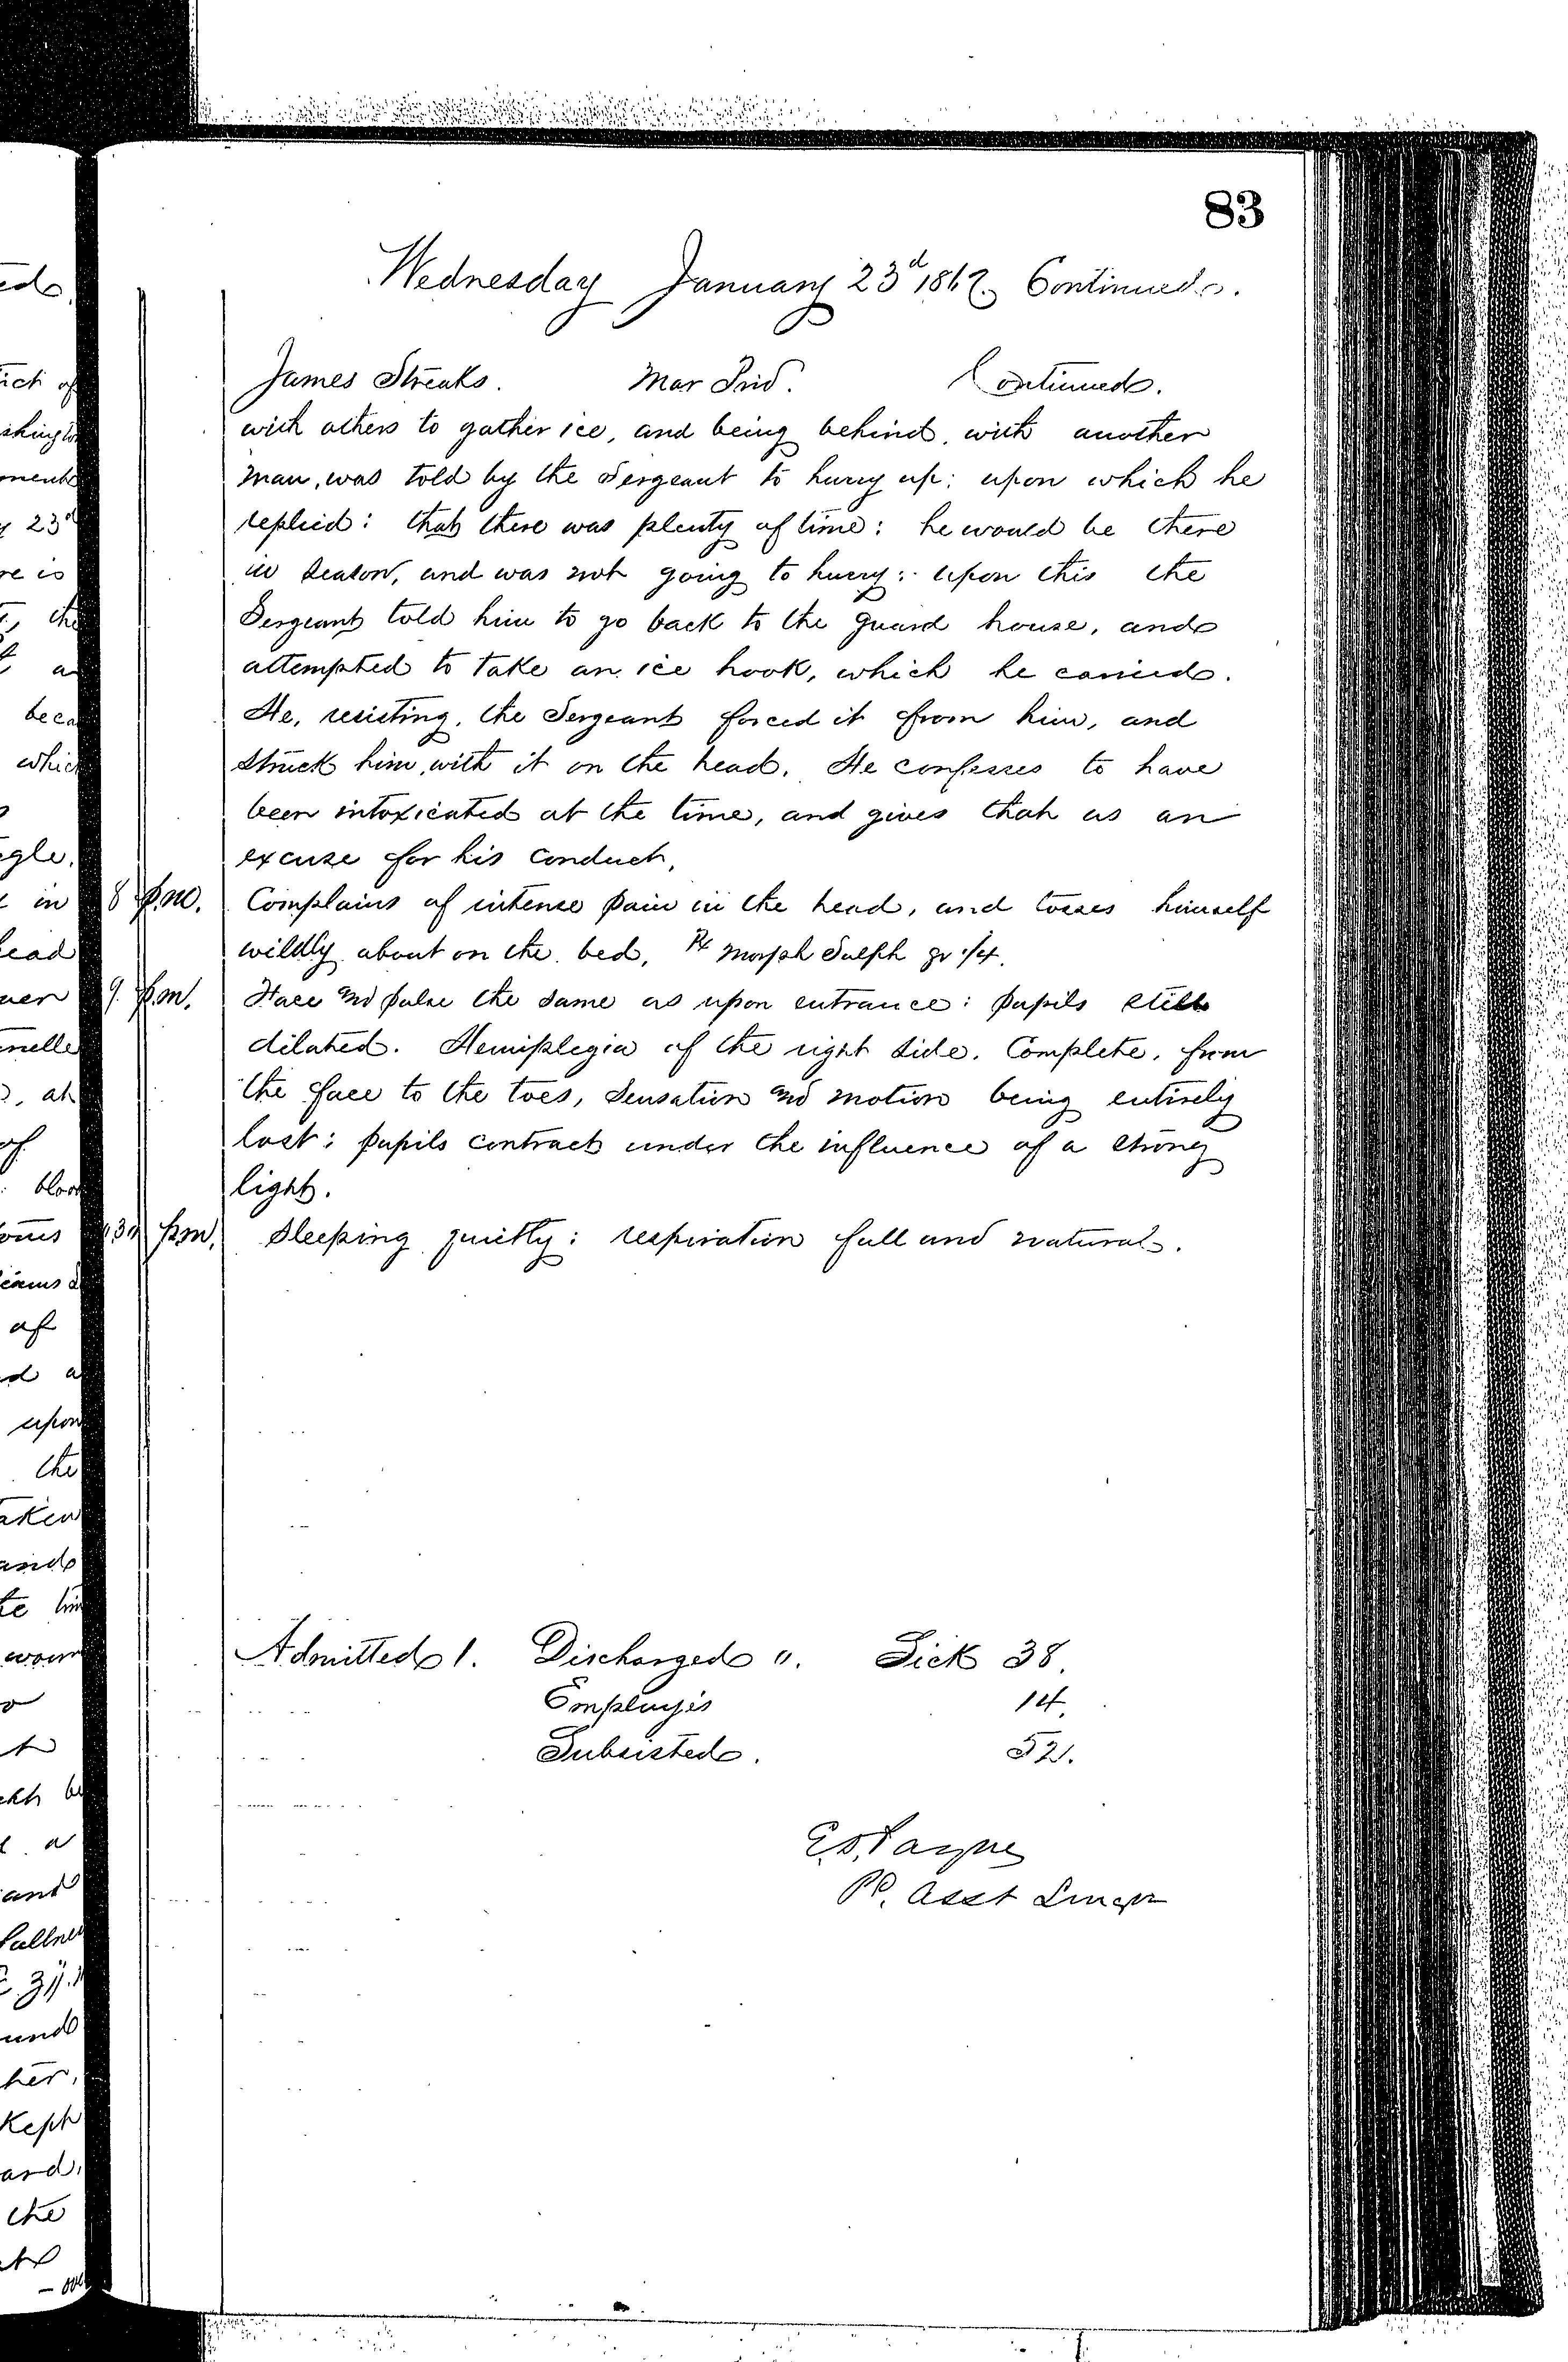 83
Wednesday January 23d 1867. Continued.
James Streaks. Mar Priv. Continued.
with others to gather ice, and being behind, with another
man, was told by the Sergeant to hurry up: upon which he
replied: that there was plenty of time: he would be there
in season, and was not going to hurry: upon this the
Sergeant told him to go back to the guard house, and
attempted to take an ice hook, which he carried.
He, resisting, the Sergeant forced it from him, and
struck him, with it on the head. He confesses to have
been intoxicated at the time, and gives that as an
excuse for his conduct.
8 p.m. Complains of intense pain in the head, and tosses himself
wildly about on the bed, ℞ Morph Sulph gr 1/4.
9. p.m. Face and pulse the same as upon entrance: pupils still
dilated. Hemiplegia of the right side. Complete, from
the face to the toes, sensation and motion being entirely
lost: pupils contract under the influence of a strong
light.
p.m. Sleeping quietly: respiration full and natural.
Admitted 1. Discharged ". Sick 38.
Employés 14.
Subsisted. 52.
Pd. Asst Surgn